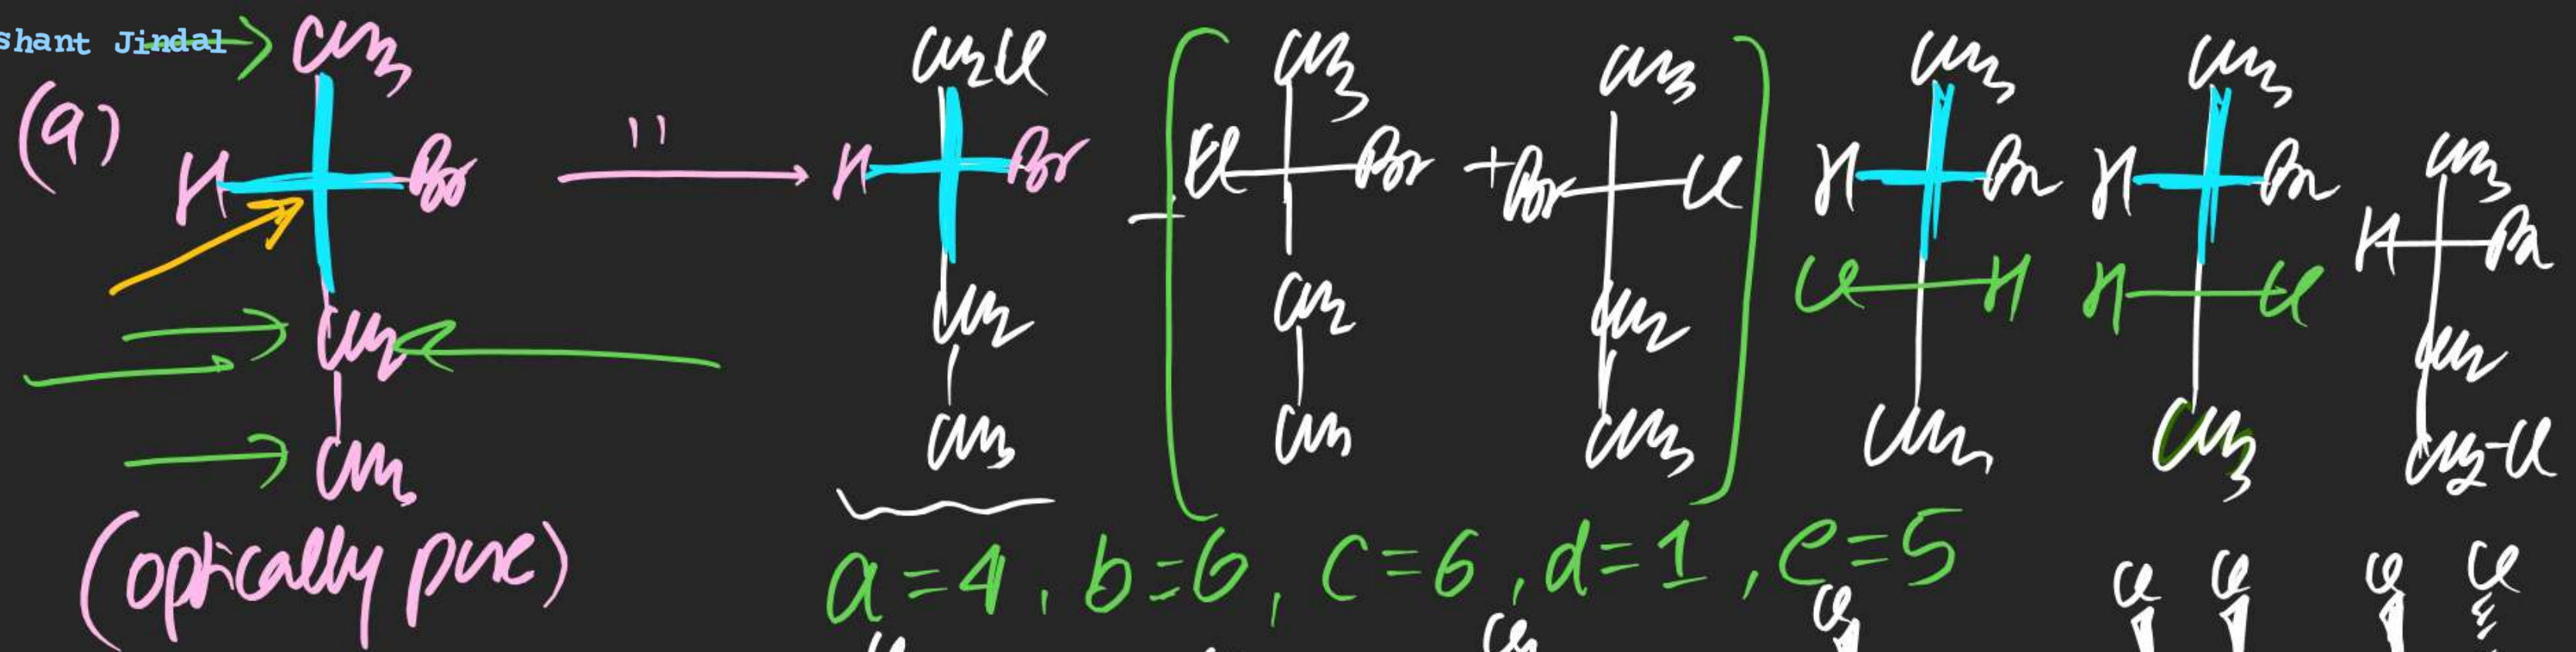 shant Jindal
(a)
CH3
H Br
CH2
CH3
(optically pure)
"
CH2Cl
H Br
CH2
CH3
CH3
Cl Br
CH2
CH3
+
CH3
Br Cl
CH2
CH3
CH3
H Br
Cl H
CH3
CH3
H Br
H Cl
CH3
CH3
H Br
CH2
CH2-Cl
a=4, b=6, c=6, d=1, e=5
Cl Cl Cl Cl